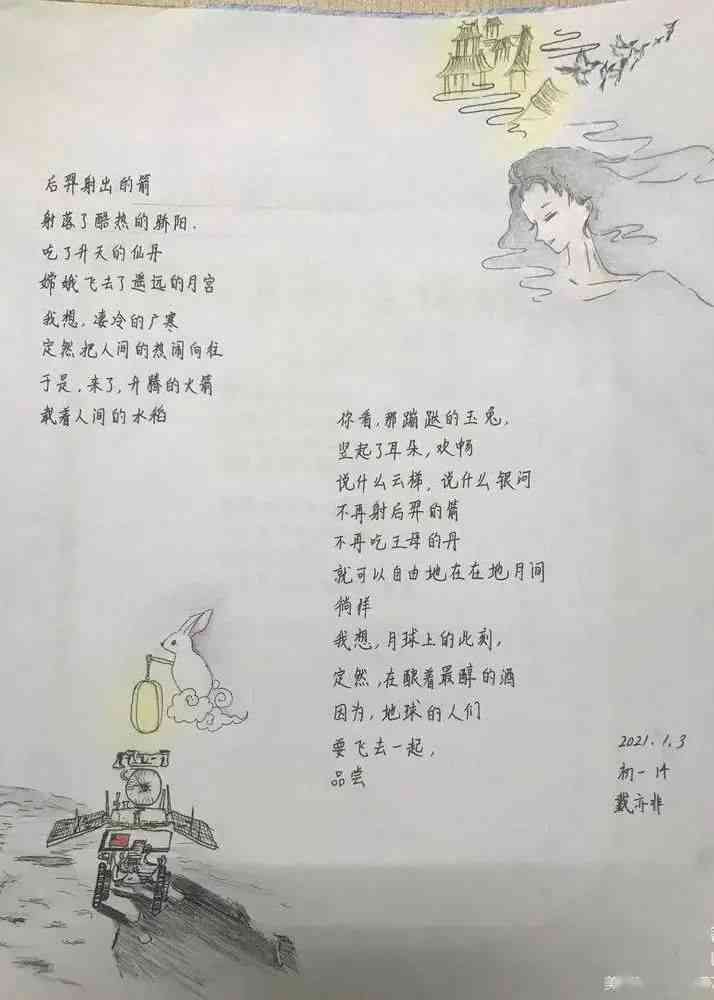 后羿射出的箭
射落了酷热的骄阳.
吃了升天的仙丹
嫦娥飞去了遥远的月宫
我想,凄冷的广寒
定然把人间的热闹向往
于是,来了,升腾的火箭
载着人间的水稻
你看,那蹦跶的玉兔,
竖起了耳朵,欢畅
说什么云梯,说什么银河
不再射后羿的箭
不再吃王母的丹
就可以自由地在在地月间
徜徉
我想,月球上的此刻,
定然,在酿着最醇的酒
因为,地球的人们
要飞去一起,
品尝
2021.1.3
初一14
戴亦非
美